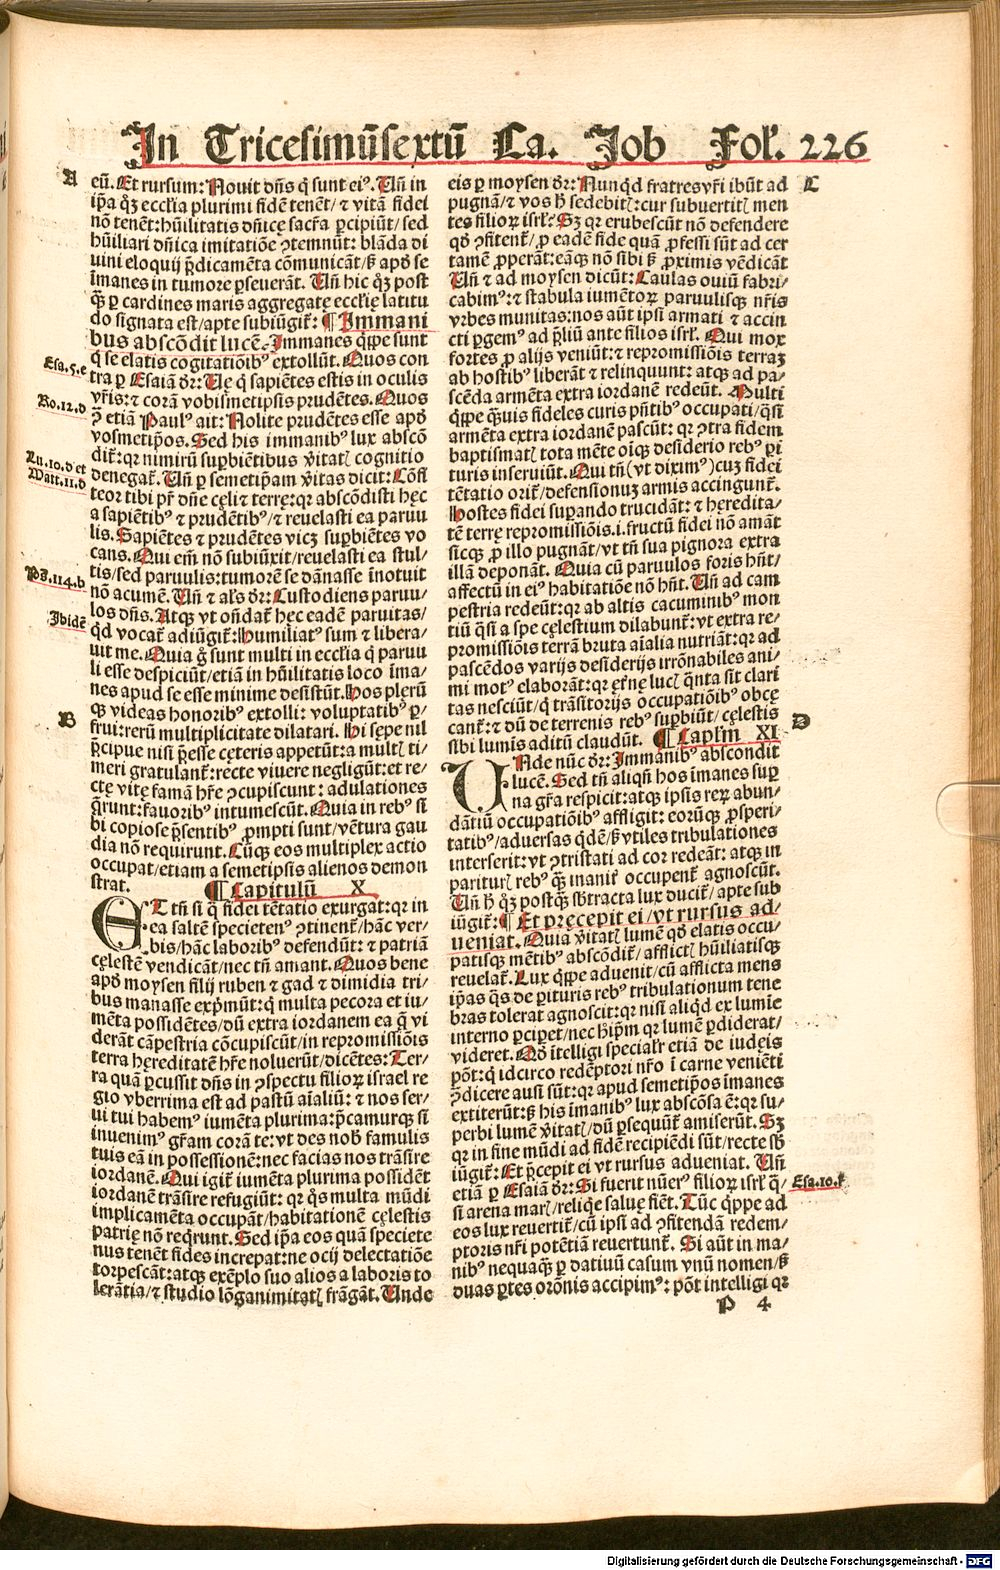 In Tricesimūsextū Ca. Job Fol. 226
A
eū. Et rursum: Nouit dn̄s q̄ sunt eiꝰ. Un̄ in
ip̄a qꝫ eccl̄ia plurimi fidē tenēt/ ⁊ vitā fidei
nō tenēt: hūilitatis dn̄ice sacr̄a ꝑcipiūt/ sed
hūiliari dn̄ica imitatiōe ꝯtemnūt: blāda di
uini eloquij p̄dicamēta cōmunicāt/ ß apd̄ se
īmanes in tumore ꝑseuerāt. Un̄ hic qꝫ post
q̄ꝫ ꝑ cardines maris aggregatę eccl̄ię latitu
do signata est/ apte subiūgit̄: ¶ Immani
bus abscōdit lucē. Immanes q̄ꝑe sunt
q̄ se elatis cogitatiōibꝰ extollūt. Quos con
Esa.5.e
tra ꝑ Esaiā dr̄: Uę q̄ sapiētes estis in oculis
vr̄is: ⁊ corā vobismetipsis prudētes. Quos
Ro.12.d
ꝯ etiā Paulꝰ ait: Nolite prudētes esse apd̄
vosmetip̄os. Sed his immanibꝰ lux abscō
dit̄: qr nimirū suꝑbiētibus v̄itatꝭ cognitio
Lu.10.d et
Matt.11.d
denegat̄. Un̄ ꝑ semetip̄am v̄itas dicit: Cōfi
teor tibi pr̄ dn̄e cęli ⁊ terrę: qr abscōdisti hęc
a sapiētibꝰ ⁊ prudētibꝰ/ ⁊ reuelasti ea paruu
lis. Sapiētes ⁊ prudētes vicꝫ suꝑbiētes vo
cans. Qui em̄ nō subiūxit/ reuelasti ea stul/
Ps̄.114.b
tis/ sed paruulis: tumorē se dānasse īnotuit
nō acumē. Un̄ ⁊ al̄s dr̄: Custodiens paruu/
los dn̄s. Atqꝫ vt on̄dat̄ hęc eadē paruitas/
Ibidē
qd̄ vocat̄ adiūgit̄: Humiliatꝰ sum ⁊ libera/
uit me. Quia g̊ sunt multi in eccl̄ia q̄ paruu
li esse despiciūt/ etiā in hūilitatis loco īma/
nes apud se esse minime desistūt. Hos plerū
B
qꝫ videas honoribꝰ extolli: voluptatibꝰ ꝑ/
frui: rerū multiplicitate dilatari. Hi sępe nil
p̄cipue nisi p̄esse cęteris appetūt: a multꝭ ti/
meri gratulant̄: recte viuere negligūt: et re/
ctę vitę famā hr̄e ꝯcupiscunt: adulationes
q̄runt: fauoribꝰ intumescūt. Quia in rebꝰ si
bi copiose p̄sentibꝰ ꝓmpti sunt/ vētura gau
dia nō requirunt. Cūqꝫ eos multiplex actio
occupat/ etiam a semetipsis alienos demon
strat. ¶ Capitulū X
ET tn̄ si q̄ fidei tētatio exurgat: qr in
ea saltē specietenꝰ ꝯtinent̄/ hāc ver/
bis/ hāc laboribꝰ defendūt: ⁊ patriā
cęlestē vendicāt/ nec tn̄ amant. Quos bene
apd̄ moysen filij ruben ⁊ gad ⁊ dimidia tri/
bus manasse exp̄mūt: q̄ multa pecora et iu/
mēta possidētes/ dū extra iordanem ea q̄ vi
derāt cāpestria cōcupiscūt/ in repromissiōis
terra hęreditatē hr̄e noluerūt/ dicētes: Ter/
ra quā ꝑcussit dn̄s in ꝯspectu filioꝝ israel re
gio vberrima est ad pastū aīaliū: ⁊ nos ser/
ui tui habemꝰ iumēta plurima: p̄camurqꝫ si
inuenimꝰ gr̄am corā te: vt des nob̄ famulis
tuis eā in possessionē: nec facias nos trāsire
iordanē. Qui igit̄ iumēta plurima possidēt
iordanē trāsire refugiūt: qr q̄s multa mūdi
implicamēta occupāt/ habitationē cęlestis
patrię nō req̄runt. Sed ip̄a eos quā speciete
nus tenēt fides increpat: ne ocij delectatiōe
torpescāt: atqꝫ exēplo suo alios a laboris to
lerātia/ ⁊ studio lōganimitatꝭ frāgāt. Unde
C
eis ꝑ moysen dr̄: Nunqd̄ fratres vr̄i ibūt ad
pugnā/ ⁊ vos h̄ sedebitꝭ: cur subuertitꝭ men
tes filioꝝ isrł? Sꝫ qr erubescūt nō defendere
qd̄ ꝯfitent̄/ ꝓ eadē fide quā ꝓfessi sūt ad cer
tamē ꝓperāt: eāqꝫ nō sibi ß ꝓximis vēdicāt
Un̄ ⁊ ad moysen dicūt: Caulas ouiū fabri/
cabimꝰ: ⁊ stabula iumētoꝝ paruulisqꝫ nr̄is
vrbes munitas: nos aūt ipsi armati ⁊ accin
cti ꝑgemꝰ ad p̄liū ante filios isrł. Qui mox
fortes ꝓ alijs veniūt: ⁊ repromissiōis terraꝫ
ab hostibꝰ liberāt ⁊ relinquunt: atqꝫ ad pa/
scēda armēta extra iordanē redeūt. Multi
q̄ꝑe q̄ꝫuis fideles curis pn̄tibꝰ occupati/ q̄si
armēta extra iordanē pascūt: qr ꝯtra fidem
baptismatꝭ tota mēte oīqꝫ desiderio rebꝰ ꝑi
turis inseruiūt. Qui tn̄ (vt diximꝰ) cuꝫ fidei
tētatio orit̄/ defensionuꝫ armis accingunt̄.
Hostes fidei suꝑando trucidāt: ⁊ hęredita/
tē terrę repromissiōis.i. fructū fidei nō amāt
sicqꝫ ꝓ illo pugnāt/ vt tn̄ sua pignora extra
illā deponāt. Quia cū paruulos foris hn̄t/
affectū in eiꝰ habitatiōe nō hn̄t. Un̄ ad cam
pestria redeūt: qr ab altis cacuminibꝰ mon
tiū q̄si a spe cęlestium dilabunt̄: vt extra re/
promissiōis terrā bruta aīalia nutriāt: qr ad
pascēdos varijs desiderijs irrōnabiles ani/
mi motꝰ elaborāt: qr ęt̄nę lucꝭ q̄nta sit clari
tas nesciūt/ q̄ trāsitorijs occupatiōibꝰ obcę
cant̄: ⁊ dū de terrenis rebꝰ suꝑbiūt/ cęlestis
D
sibi lumis aditū claudūt. ¶ Capl̄m XI
UNde nūc dr̄: Immanibꝰ abscondit
lucē. Sed tn̄ aliqn̄ hos īmanes suꝑ
na gr̄a respicit: atqꝫ ipsis reꝝ abun/
dātiū occupatiōibꝰ affligit: eorūqꝫ ꝓsperi/
tatibꝰ/ aduersas q̄dē/ ß vtiles tribulationes
interserit: vt ꝯtristati ad cor redeāt: atqꝫ in
pariturꝭ rebꝰ q̄ꝫ inanit̄ occupent̄ agnoscūt.
Un̄ h̄ qꝫ postq̄ꝫ sb̄tracta lux ducit̄/ apte sub
iūgit̄: ¶ Et pręcepit ei/ vt rursus ad/
ueniat. Quia v̄itatꝭ lumē qd̄ elatis occu/
patisqꝫ mētibꝰ abscōdit̄/ afflictꝭ hūiliatisqꝫ
reuelat̄. Lux q̄ꝑe aduenit/ cū afflicta mens
ip̄as q̄s de ꝑituris rebꝰ tribulationum tene
bras tolerat agnoscit: qr nisi aliqd̄ ex lumīe
interno ꝑciꝑet/ nec h̄ip̄m qr lumē ꝑdiderat/
videret. Qd̄ ītelligi speciał̄r etiā de iudęis
pōt: q̄ idcirco redēptori nr̄o ī carne veniēti
ꝯdicere ausi sūt: qr apud semetip̄os īmanes
extiterūt: ß his īmanibꝰ lux abscōsa ē: qr su/
perbi lumē v̄itatꝭ/ dū ꝑsequūt̄ amiserūt. Sꝫ
qr in fine mūdi ad fidē recipiēdi sūt/ recte sb̄
iūgit̄: Et p̄cepit ei vt rursus adueniat. Un̄
Esa.10.f
etiā ꝑ Esaiā dr̄: Si fuerit nūerꝰ filioꝝ isrł q̄/
si arena marꝭ/ reliq̄e saluę fiēt. Tūc q̄ppe ad
eos lux reuertit̄/ cū ipsi ad ꝯfitendā redem/
ptoris nr̄i potētiā reuertunt̄. Si aūt in ma/
nibꝰ nequaqꝫ ꝑ datiuū casum vnū nomen/ ß
duas ꝑtes orōnis accipimꝰ: pōt intelligi qr
P 4
Digitalisierung gefördert durch die Deutsche Forschungsgemeinschaft - DFG